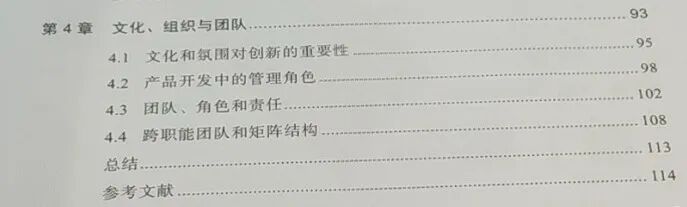 第4章 文化、组织与团队 93
4.1 文化和氛围对创新的重要性 95
4.2 产品开发中的管理角色 98
4.3 团队、角色和责任 102
4.4 跨职能团队和矩阵结构 108
总结 113
参考文献 114